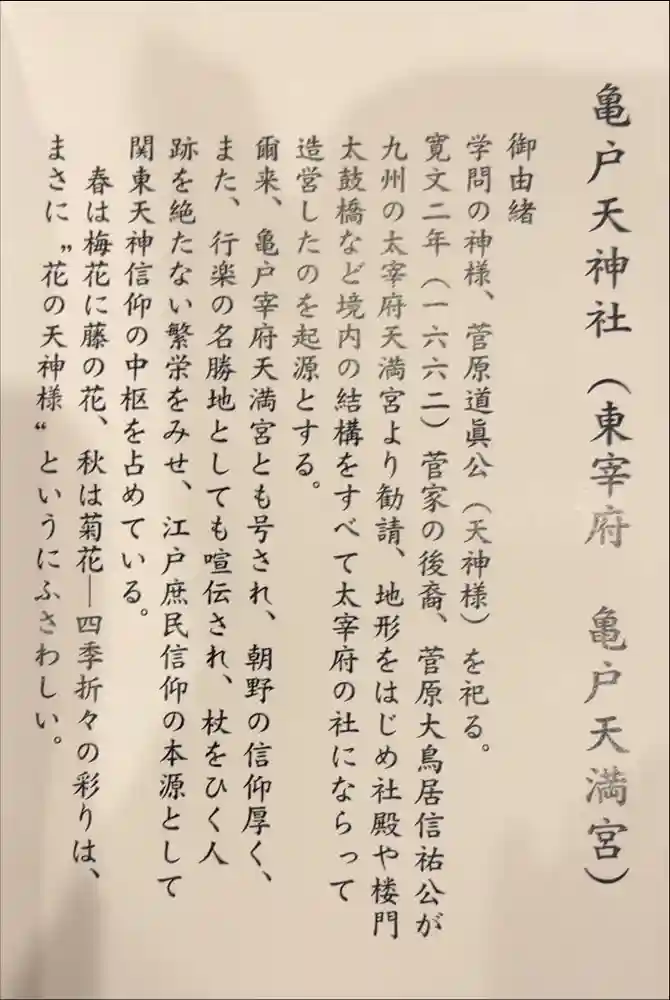 亀戸天神社（東宰府　亀戸天満宮）
御由緒
学問の神様、菅原道眞公（天神様）を祀る。
寛文二年（一六六二）菅家の後裔、菅原大鳥居信祐公が
九州の太宰府天満宮より勧請、地形をはじめ社殿や楼門
太鼓橋など境内の結構をすべて太宰府の社にならって
造営したのを起源とする。
爾来、亀戸宰府天満宮とも号され、朝野の信仰厚く、
また、行楽の名勝地としても喧伝され、杖をひく人
跡を絶たない繁栄をみせ、江戸庶民信仰の本源として
関東天神信仰の中枢を占めている。
　春は梅花に藤の花、秋は菊花―四季折々の彩りは、
まさに〝花の天神様〟というにふさわしい。